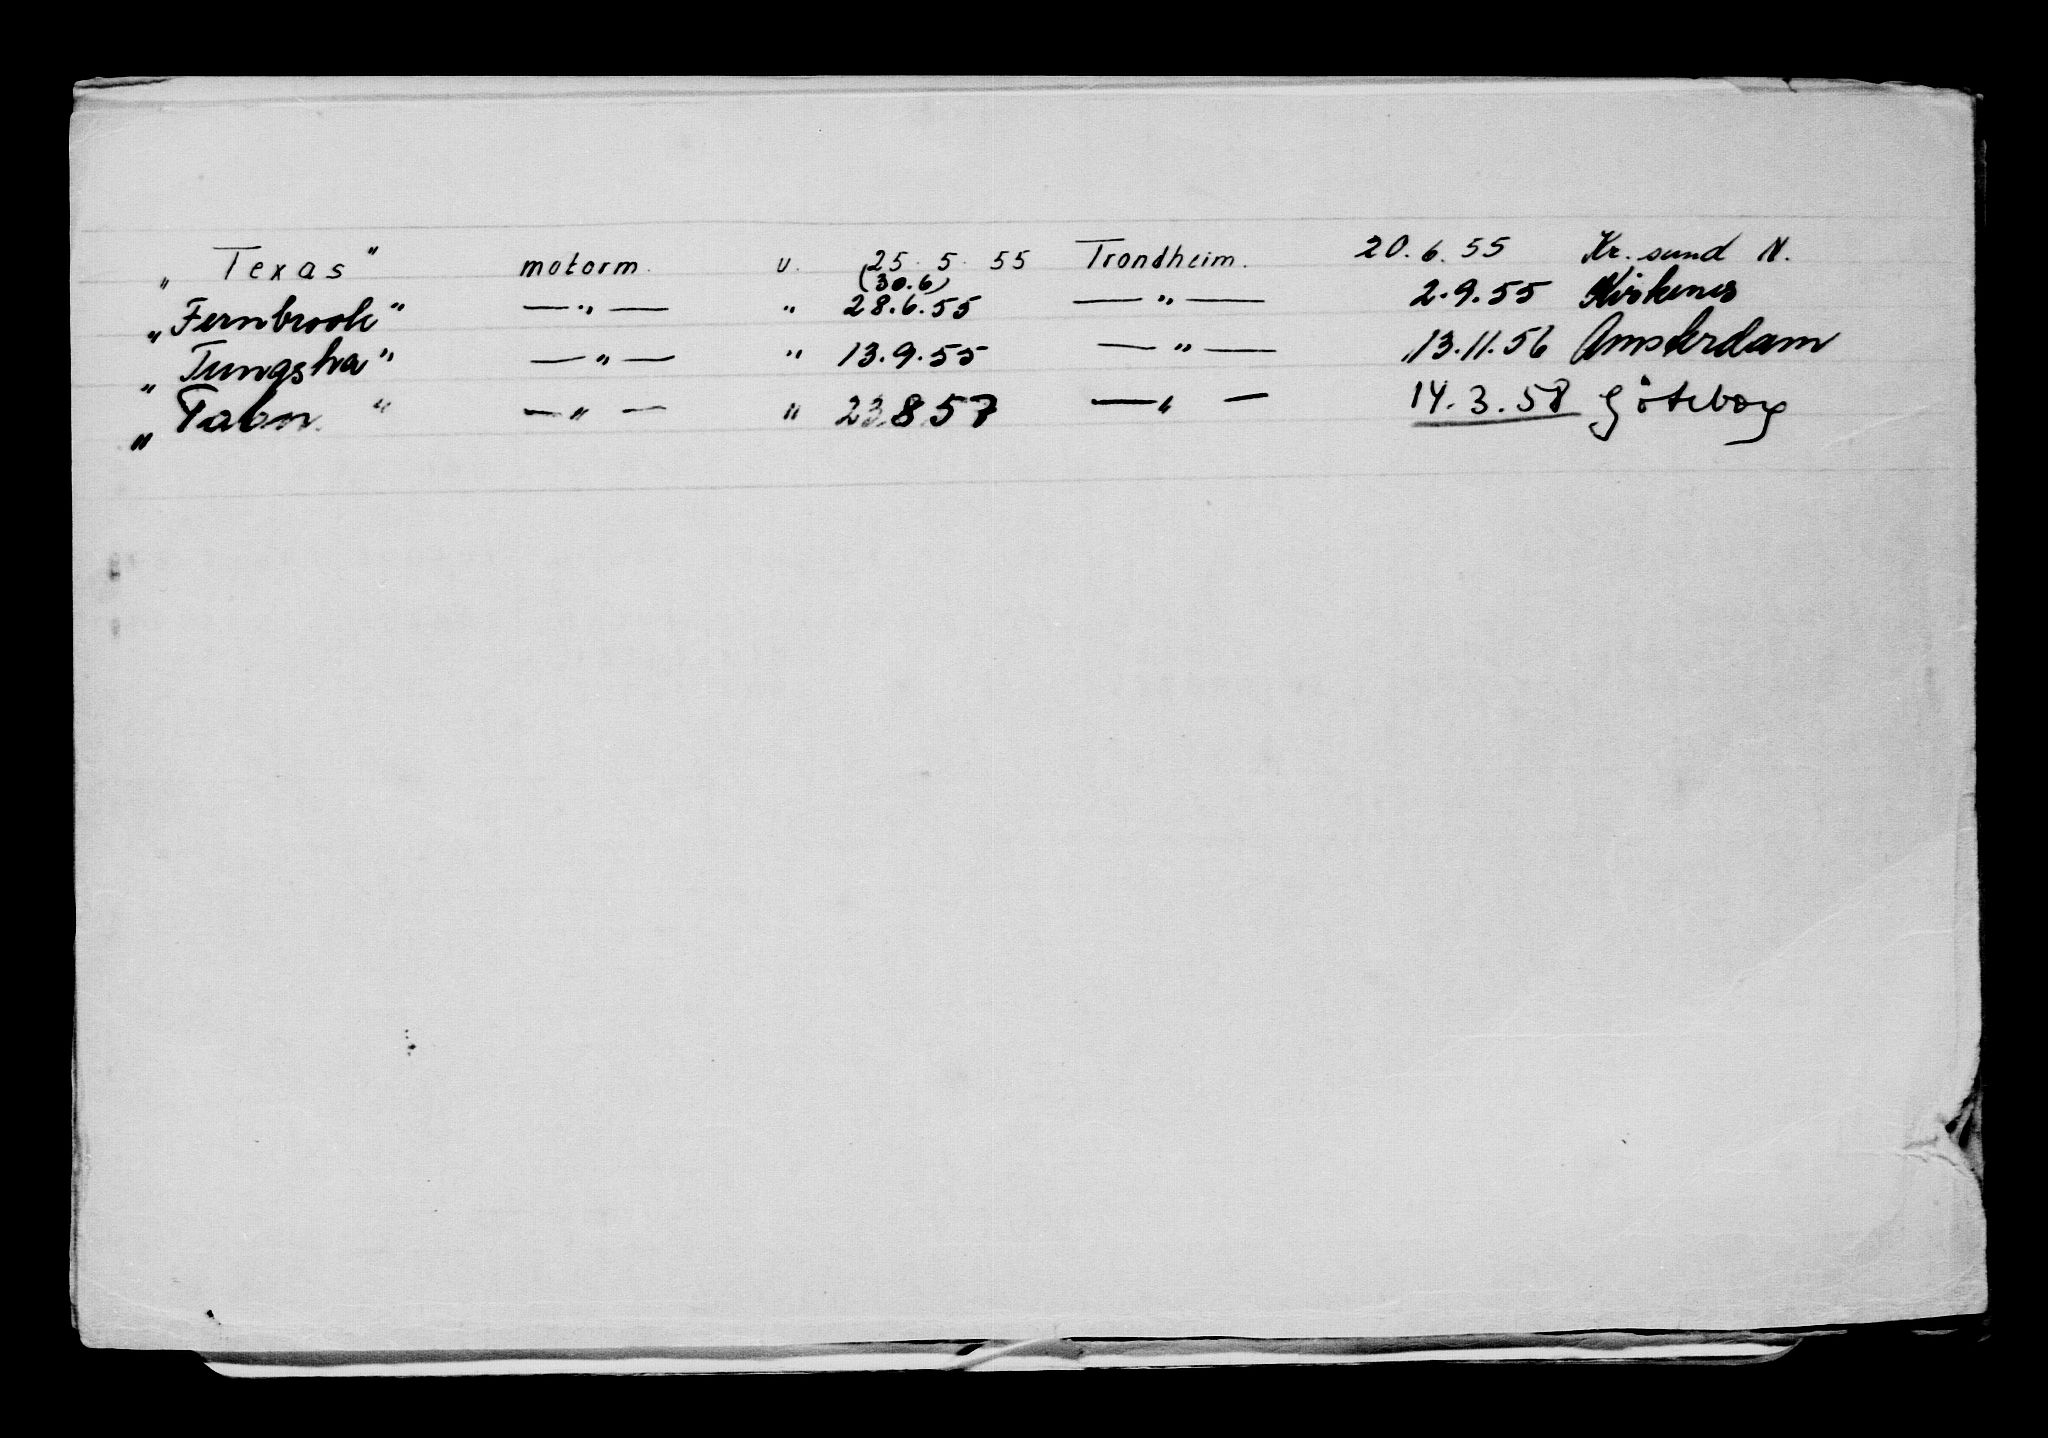 „ Texas " motorm. u. 25. 5. 55 Trondheim. 20. 6. 55 Kr. sund N.
(30.6)
„ Fernbrook " — " — " 28.6.55 — " — 2.9.55 Kirkenes
„ Tungsha " — " — " 13.9.55 — " — 13.11.56 Amsterdam
„ Tabor " — " — " 23.8.57 — " — 14.3.58 Göteborg